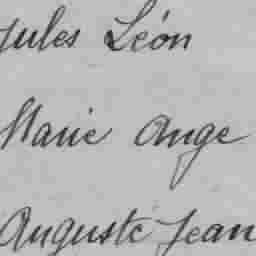 Jules Léon
Marie Ange
Auguste Jean